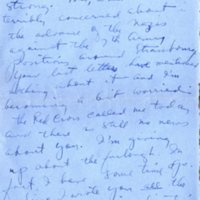 strong.
terribly concerned about
the advance of the Nazis
against the 7th Army
positions around Strasbourg.
Your last letters have mentioned
nothing about it and I'm
becoming a bit worried.
The Red Cross called me today
and there is still no news
about you. I'm giving
up about the furlough I'm
but I have some time off.
write you all the